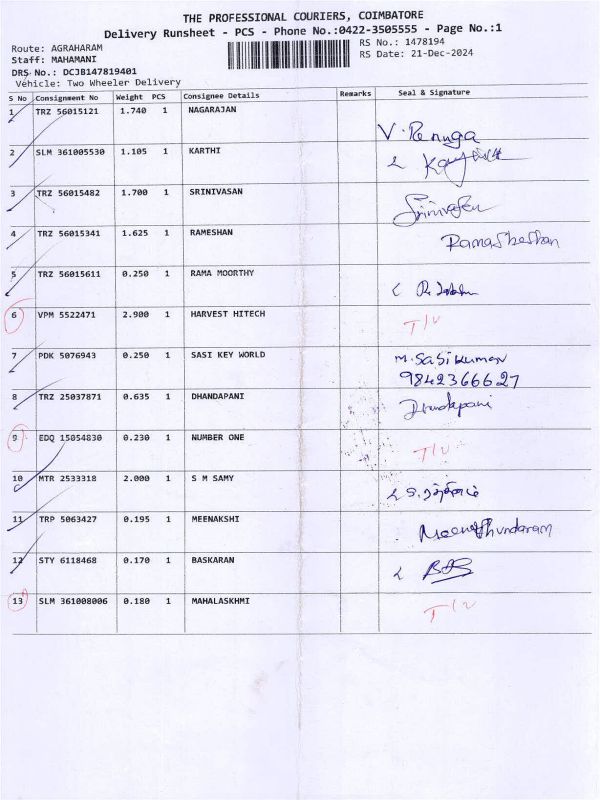 THE PROFESSIONAL COURIERS, COIMBATORE
Delivery Runsheet - PCS - Phone No.:0422-3505555 - Page No.:1
Route: AGRAHARAM
RS No.: 1478194
Staff: MAHAMANI
RS Date: 21-Dec-2024
DRS No.: DCJB147819401
Vehicle: Two Wheeler Delivery
S No Consignment No Weight PCS Consignee Details Remarks Seal & Signature
1 TRZ 56015121 1.740 1 NAGARAJAN
V. Renuga
2 SLM 361005530 1.105 1 KARTHI
3 TRZ 56015482 1.700 1 SRINIVASAN
Srinivasan
4 TRZ 56015341 1.625 1 RAMESHAN
5 TRZ 56015611 0.250 1 RAMA MOORTHY
6 VPM 5522471 2.900 1 HARVEST HITECH
T/V
7 PDK 5076943 0.250 1 SASI KEY WORLD
M. Sasikumar
9842366627
8 TRZ 25037871 0.635 1 DHANDAPANI
Dhandapani
9 EDQ 15054830 0.230 1 NUMBER ONE
T/V
10 MTR 2533318 2.000 1 S M SAMY
11 TRP 5063427 0.195 1 MEENAKSHI
12 STY 6118468 0.170 1 BASKARAN
13 SLM 361008006 0.180 1 MAHALASKHMI
T/V